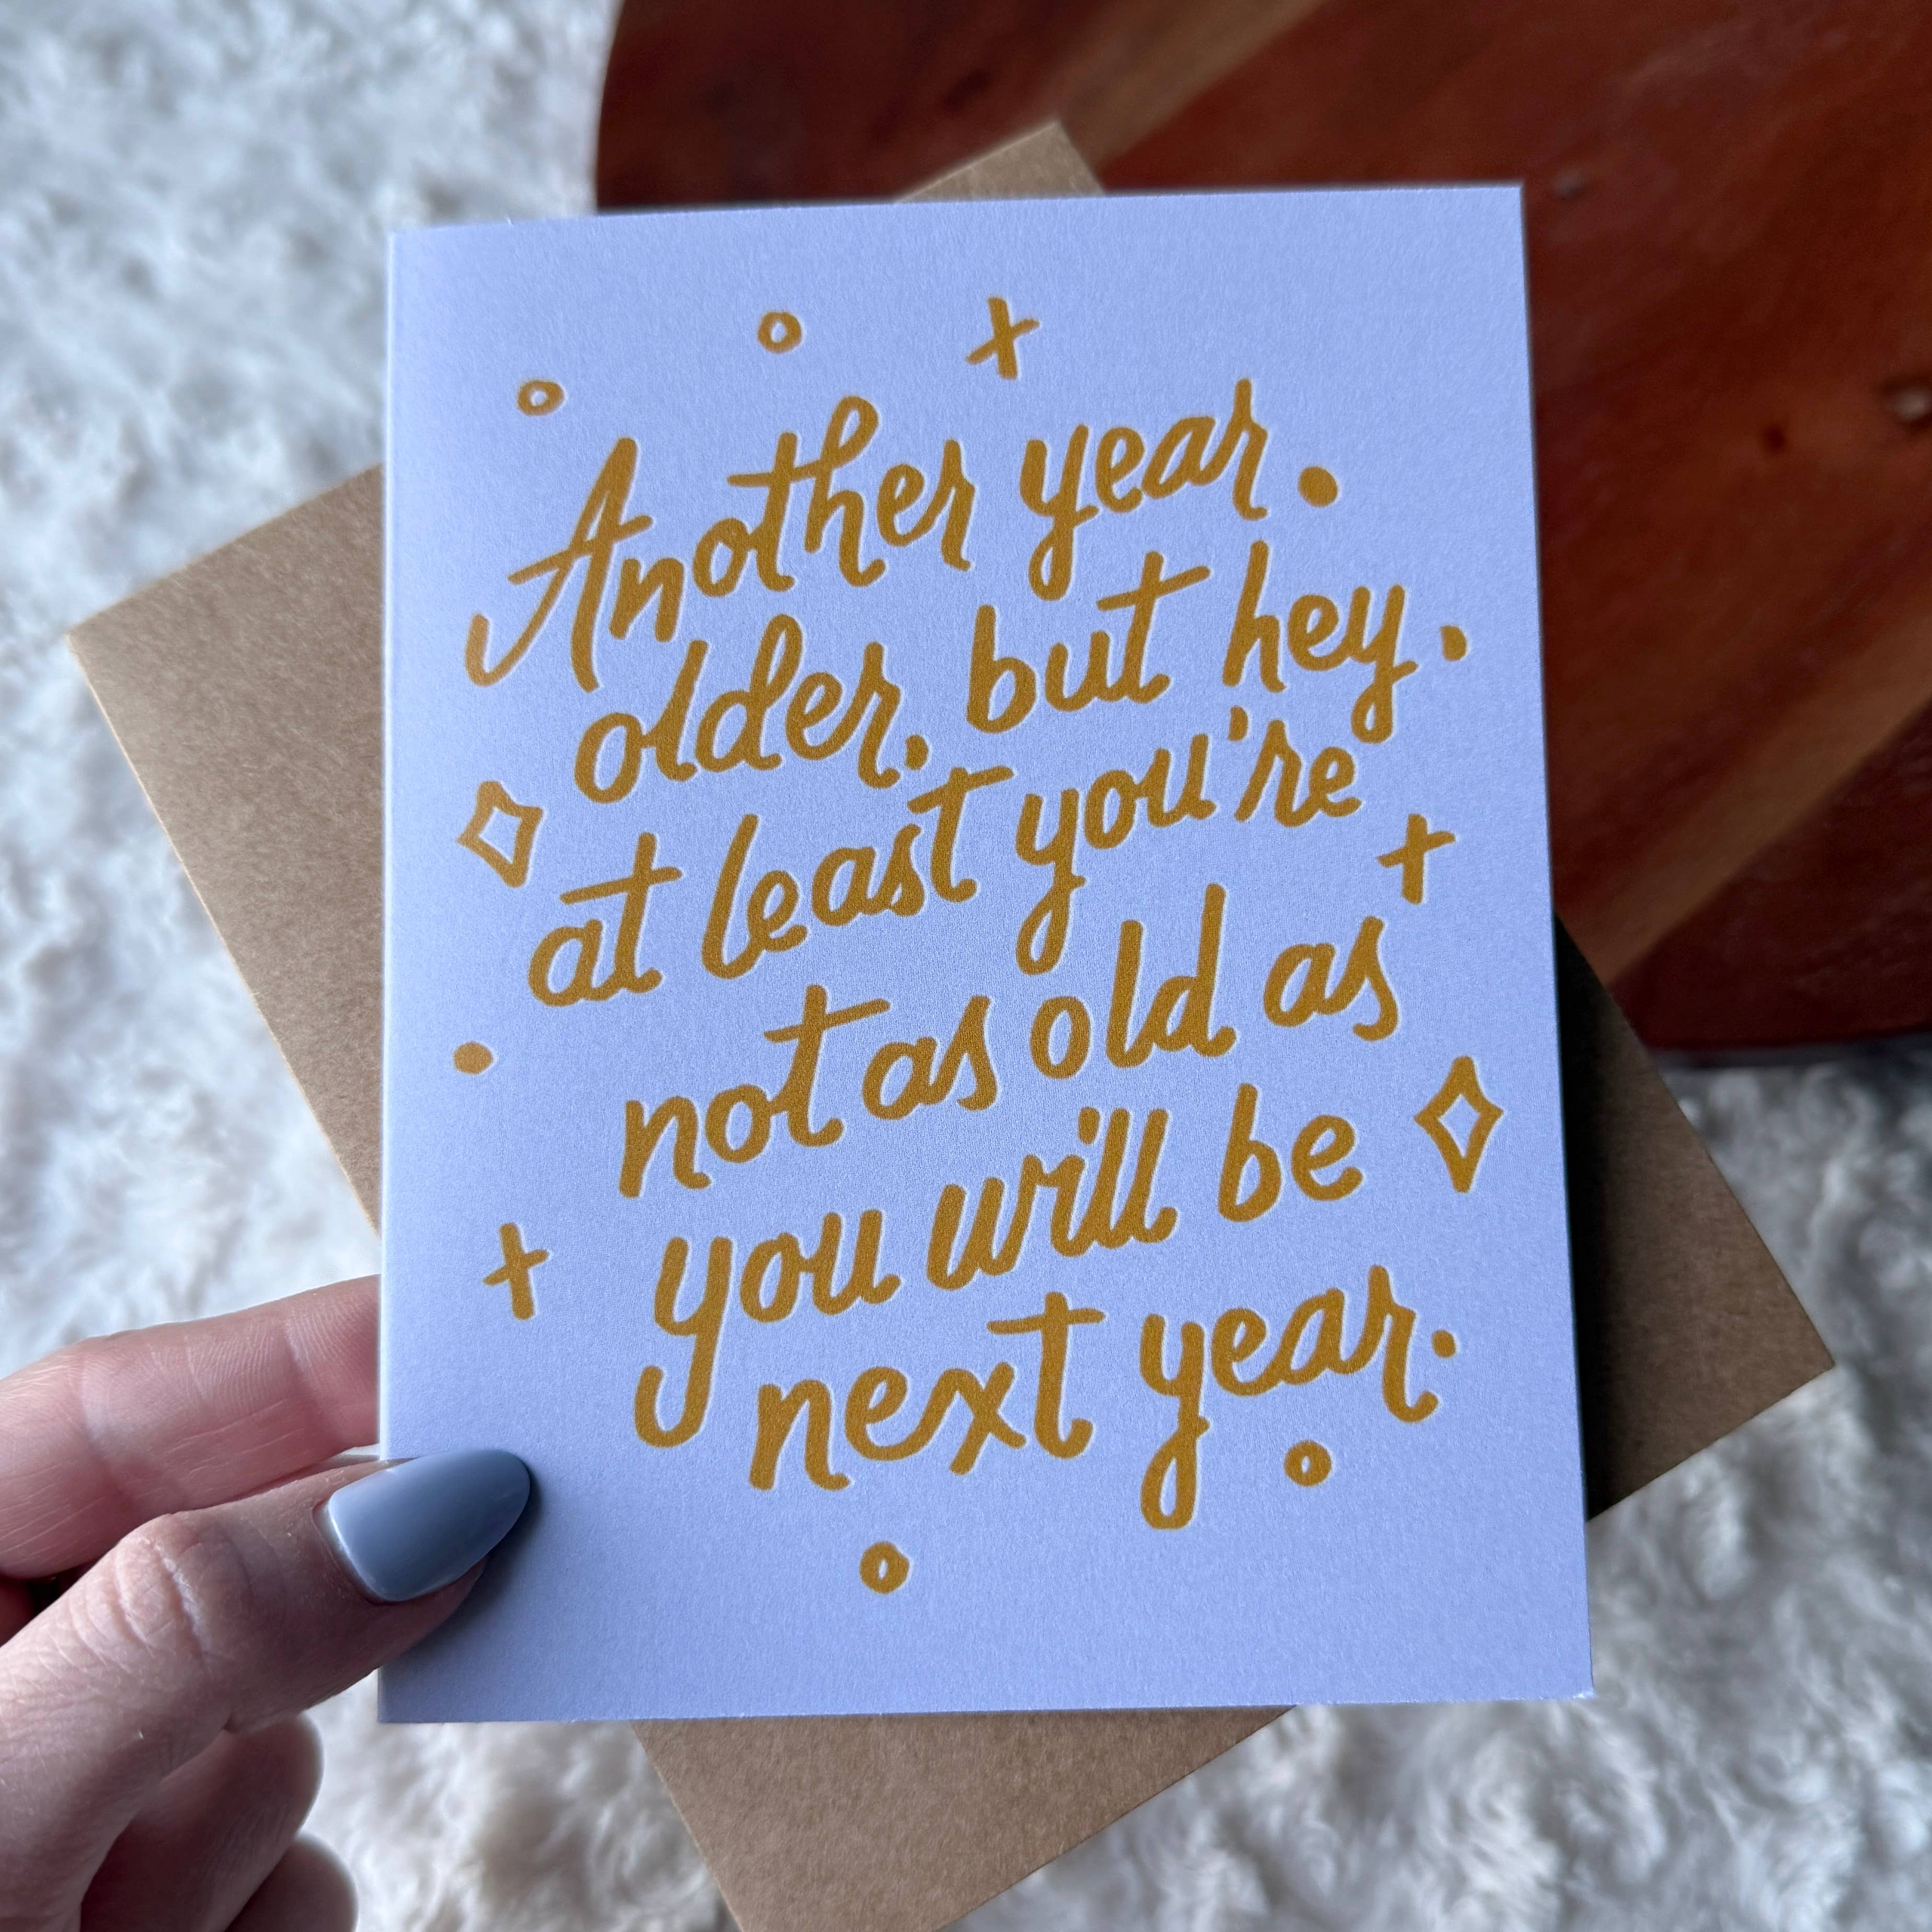 Another year
older, but hey
at least you're
not as old as
you will be
next year.